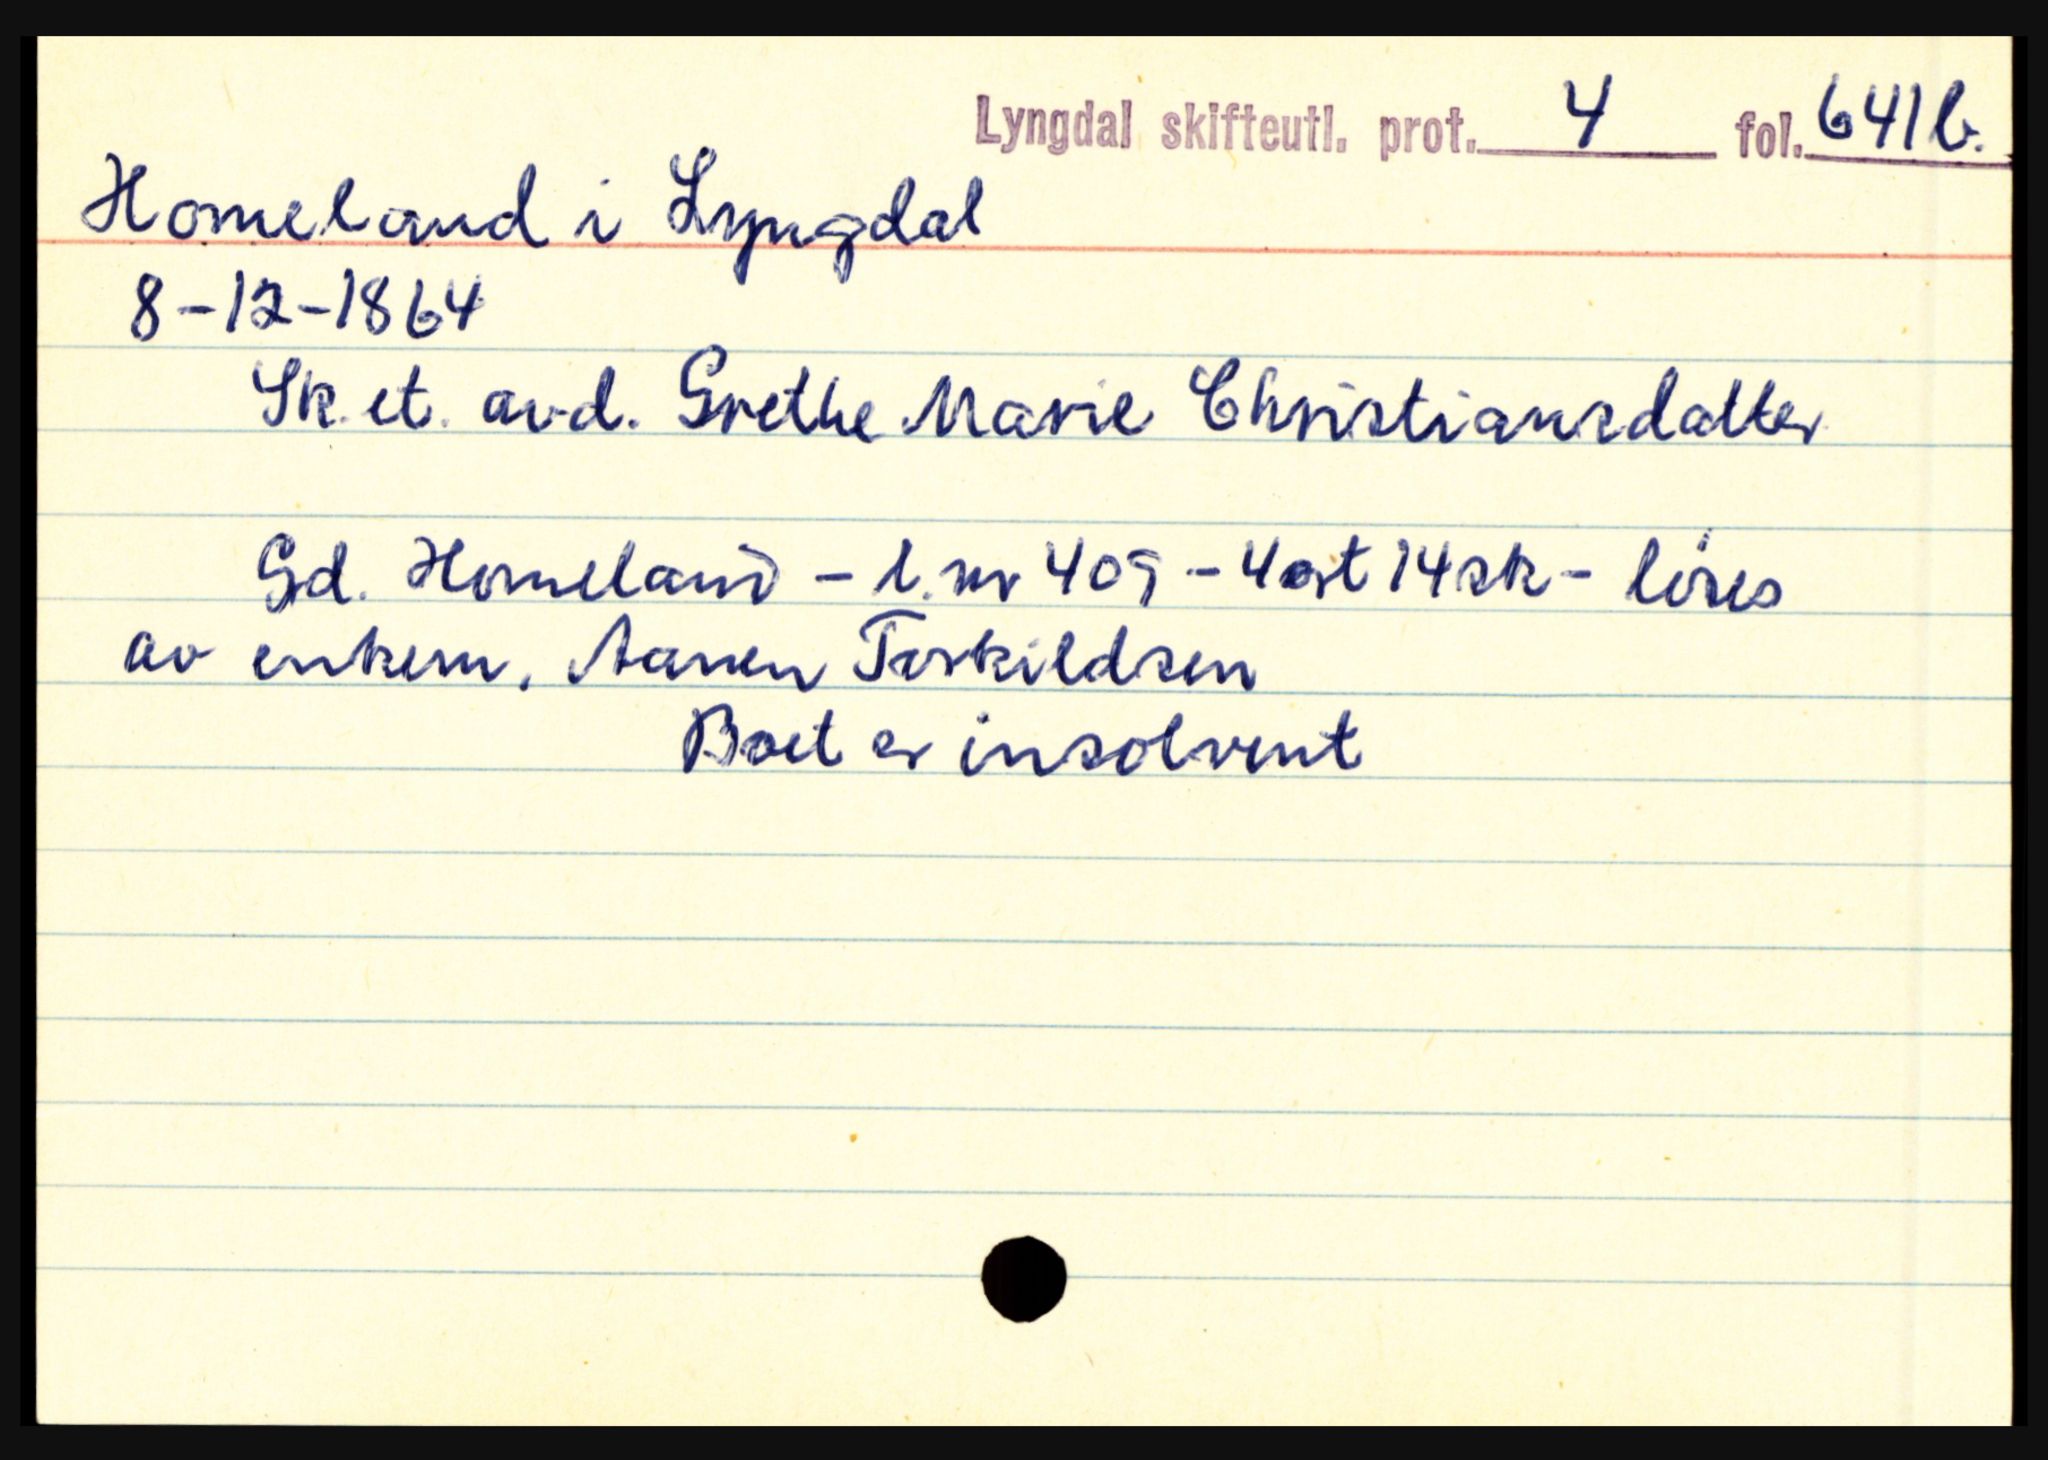 Lyngdal skifteutl. prot. 4 fol. 641 b.
Homeland i Lyngdal
8-12-1864
Sk. et. avd. Grethe Marie Christiansdatter
Gd. Homeland - l. nr 409 - 4 ort 14 sk - löses
av enkem. Aanen Terkildsen
Boet er insolvent